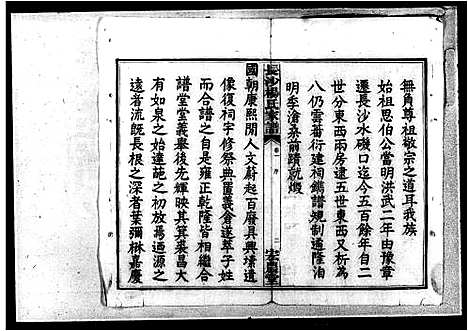 無負尊祖敬宗之道耳我族
始祖思伯公當明洪武二年由豫章
遷長沙水磯口迄今五百餘年自二
世分東西兩房逮五世東西又析爲
八仍雲蕃衍建祠鐫譜規制遹隆洎
明季滄桑前蹟就燬
長沙楊氏家譜
卷一 序
二
國朝康熙閒人文蔚起百廢具興壙遺
像復祠宇修祭典置義倉遂萃子姓
而合譜之自是雍正乾隆皆有成
譜堂堂義舉後先輝映其箕裘昌大
有如泉之始達蘤之初放溯迺源之
遠者流旣長根之深者葉彌楙嘉慶